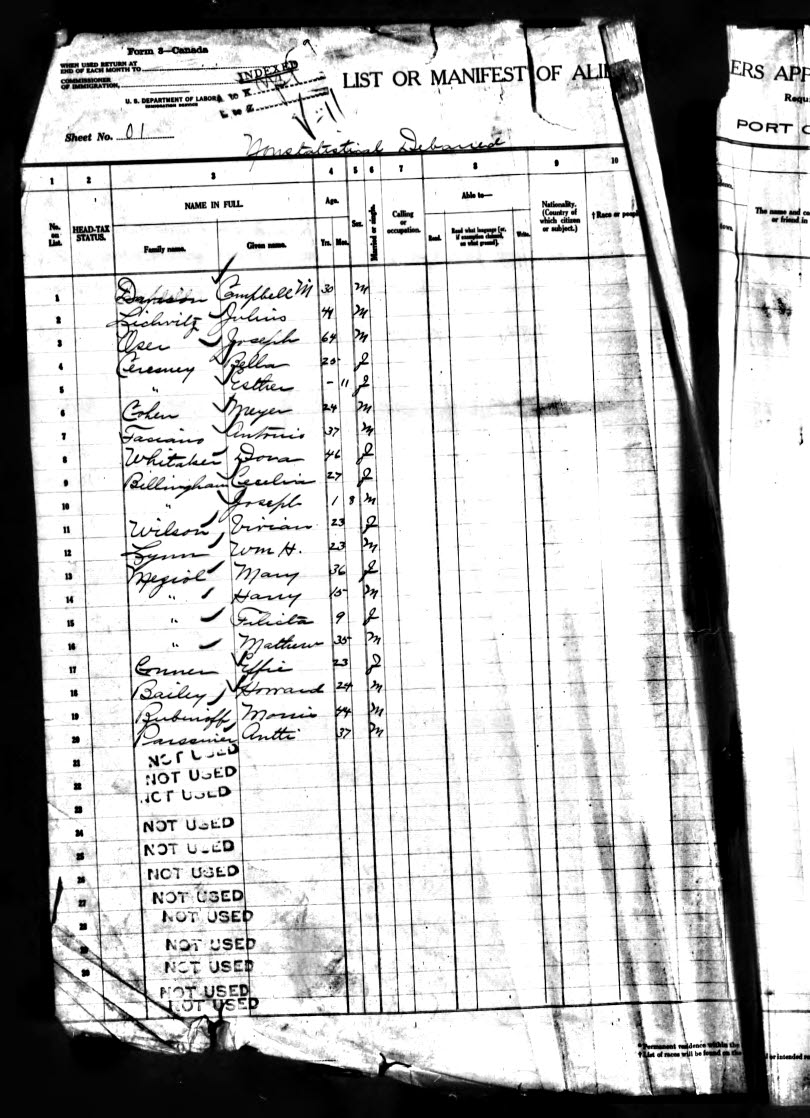 Form 3—Canada
WHEN USED RETURN AT
END OF EACH MONTH TO
COMMISSIONER
OF IMMIGRATION,
INDEXED
A to K
L to Z
U. S. DEPARTMENT OF LABOR
IMMIGRATION SERVICE
Sheet No. 01
LIST OR MANIFEST OF ALIE
ERS APP
Requ
PORT O
Nonstatistical Debarred
1 2 3 4 5 6 7 8 9 10
No. on List.
HEAD-TAX STATUS.
NAME IN FULL.
Family name.
Given name.
Age.
Yrs. Mos.
Sex.
Married or single.
Calling or occupation.
Able to—
Read.
Read what language [or, if exemption claimed, on what ground].
Write.
Nationality. (Country of which citizen or subject.)
† Race or people
The name and
or friend in
1 Davison Campbell M 30 M
2 Lichvitz Julius 41 M
3 Oser Joseph 64 M
4 Ceresney Bella 25 F
5 " Esther - 11 F
6 Cohen Meyer 24 M
7 Fasciano Antonio 37 M
8 Whitaker Dora 46 F
9 Billingham Cecelia 27 F
10 " Joseph 1 8 M
11 Wilson Vivian 23 F
12 Lynn Wm H. 23 M
13 Negiol Mary 36 F
14 " Harry 15 M
15 " Filicta 9 F
16 " Mathew 35 M
17 Conner Effie 23 F
18 Bailey Howard 24 M
19 Rubinoff Morris 44 M
20 Parssinier Antti 37 M
21 NOT USED
22 NOT USED
NOT USED
23
24 NOT USED
25 NOT USED
26 NOT USED
27 NOT USED
NOT USED
28
29 NOT USED
30 NOT USED
NOT USED
NOT USED
* Permanent residence within the
† List of races will be found on the
d or intended